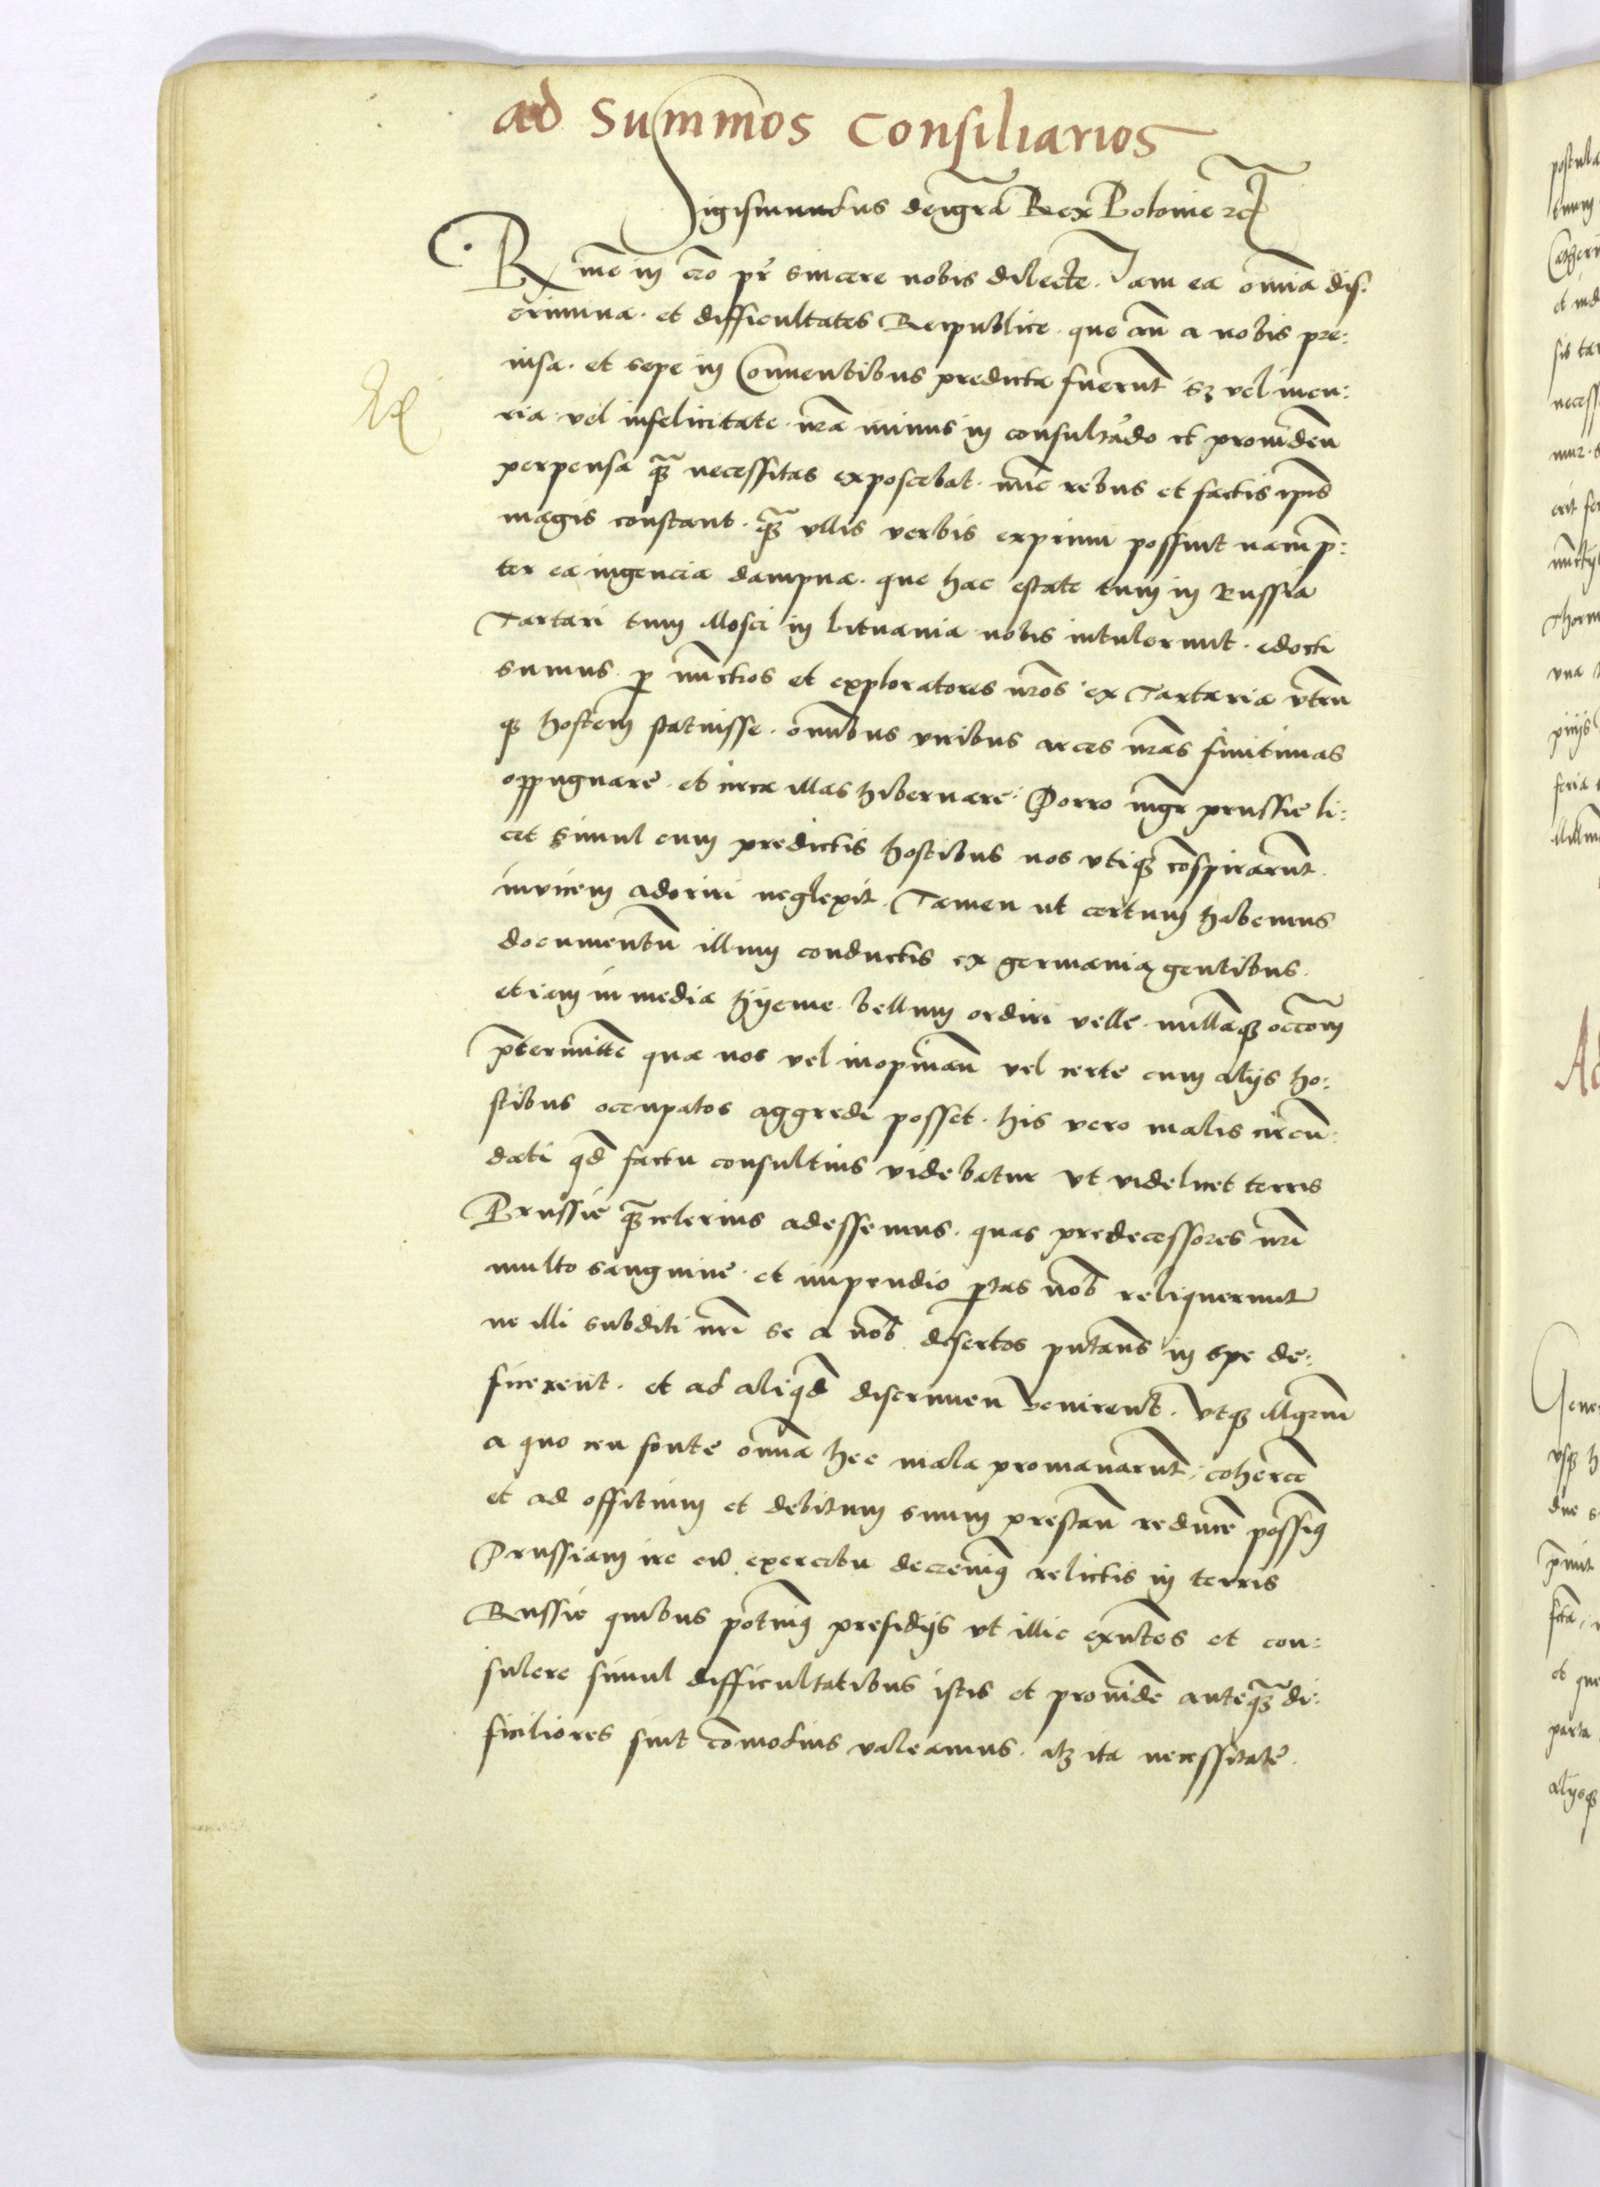 ad Summos Consiliarios
Sigismundus dei gra Rex Polonie etc
Rme in cro pr sincere nobis dilecte. Iam ea omnia dis:
crimina. et difficultates Reipublice. que an a nobis pre:
uisa. et sepe in Conuentibus predicta fuerunt sz vel incu:
ria vel infelicitate nra minus in consultando et prouiden
perpensa qz necessitas exposcebat. nunc rebus et factis ipis
magis constant. qz vllis verbis exprimi possint nam p:
ter ea ingencia dampna. que hac estate tum in Russia
Tartari tum Mosci in Lituania nobis intulerunt. edocti
sumus. p nunctios et exploratores nros ex Tartaria vtrun
qz hostem statuisse. omnibus viribus arces nras finitimas
oppugnare. et circa illas hibernare. Porro mgr prussie li:
cet simul cum predictis hostibus nos vtiqz conspirarunt.
inuicem adoriri neglexit. Tamen ut certum habemus
documentum illum conductis ex germania gentibus.
etiam in media hyeme. bellum ordiri velle. nullaqz occom
ptermitte qua nos vel inopinan vel certe cum alijs ho:
stibus occupatos aggredi posset. his vero malis circum:
dati qd factu consultius videbatur vt videlicet terris
Prussie qz celerius adessemus. quas predecessores nri
multo sanguine. et impendio ptas nob reliquerunt
ne illi subditi nri se a nob desertos putans in spe de:
ficerent. et ad aliqd discrimen venirent. vtqz Mgrum
a quo ceu fonte omnia hec mala promanarunt, coherce
et ad offitium et debitum suum prestan reduce possimus
Prussiam ire cu exercitu decreuimus relictis in terris
Russie quibus potuimus presidijs vt illic exntes et con:
sulere simul difficultatibus istis et prouide anteqz di:
ficiliores sint comodius valeamus. atz ita necessitate.